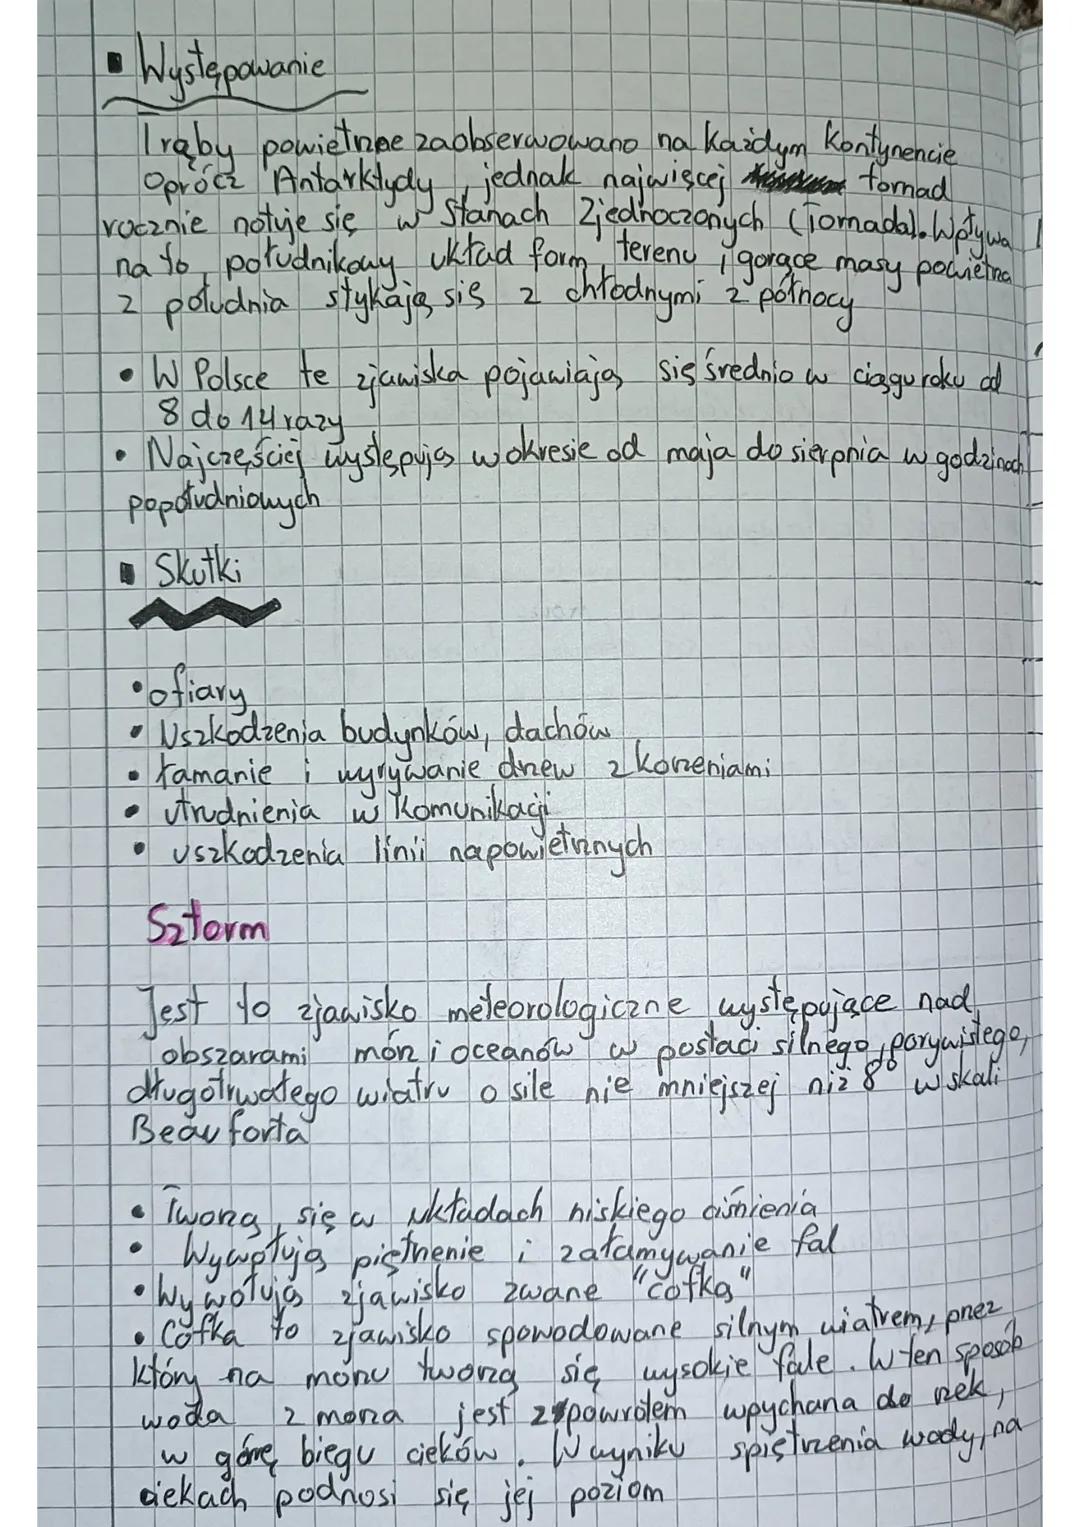 Występowanie
Trąby powietrzne zaobserwowano na każdym kontynencie
oprócz Antarktydy, jednak najwięcej tornad
rocznie notuje się w Stanach Zjednoczonych (Tornada). Wpływa
na to południkowy układ form terenu i gorące masy powietrza
z południa stykają się z chłodnymi z północy
• W Polsce te zjawiska pojawiają się średnio w ciągu roku od
8 do 14 razy
• Najczęściej występują w okresie od maja do sierpnia w godzinach
popołudniowych
Skutki
• ofiary
• Uszkodzenia budynków, dachów
• łamanie i wyrywanie drzew z korzeniami
• utrudnienia w komunikacji
• uszkodzenia linii napowietrznych
Sztorm
Jest to zjawisko meteorologiczne występujące nad
obszarami mórz i oceanów w postaci silnego, porywistego,
długotrwałego wiatru o sile nie mniejszej niż 8° w skali
Beauforta
• Tworzą się w układach niskiego ciśnienia
• Wywołują piętrzenie i załamywanie fal
• Wywołują zjawisko zwane "cofką"
• Cofka to zjawisko spowodowane silnym wiatrem, przez
który na morzu tworzą się wysokie fale. W ten sposób
woda z morza jest z powrotem wpychana do rzek,
w górę biegu cieków. W wyniku spiętrzenia wody, na
ciekach podnosi się jej poziom